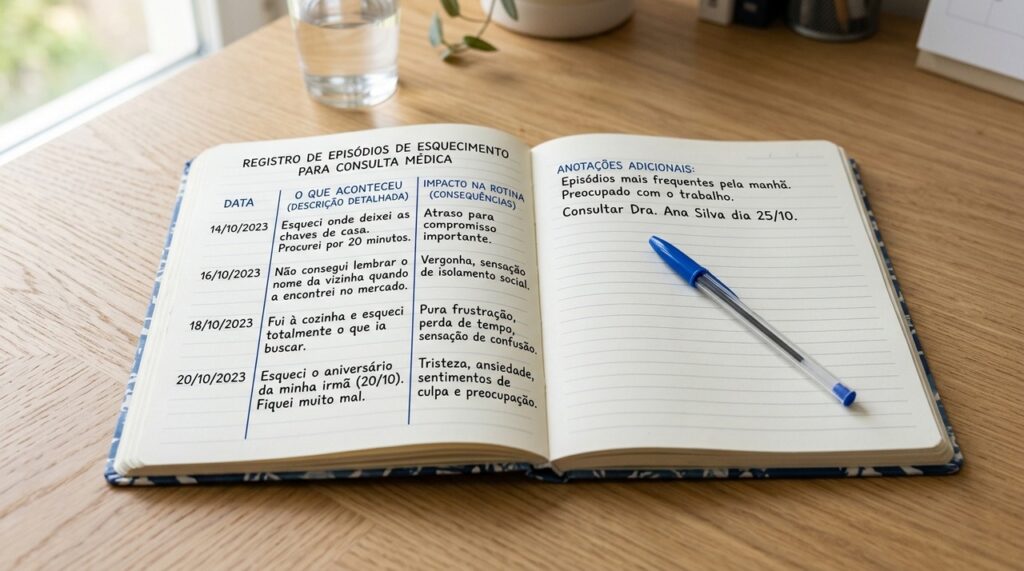 REGISTRO DE EPISÓDIOS DE ESQUECIMENTO
PARA CONSULTA MÉDICA
DATA
O QUE ACONTECEU
(DESCRIÇÃO DETALHADA)
IMPACTO NA ROTINA
(CONSEQUÊNCIAS)
14/10/2023
Esqueci onde deixei as
chaves de casa.
Procurei por 20 minutos.
Atraso para
compromisso
importante.
16/10/2023
Não consegui lembrar o
nome da vizinha quando
a encontrei no mercado.
Vergonha, sensação
de isolamento social.
18/10/2023
Fui à cozinha e esqueci
totalmente o que ia
buscar.
Pura frustração,
perda de tempo,
sensação de confusão.
20/10/2023
Esqueci o aniversário
da minha irmã (20/10).
Fiquei muito mal.
Tristeza, ansiedade,
sentimentos de
culpa e preocupação.
ANOTAÇÕES ADICIONAIS:
Episódios mais frequentes pela manhã.
Preocupado com o trabalho.
Consultar Dra. Ana Silva dia 25/10.